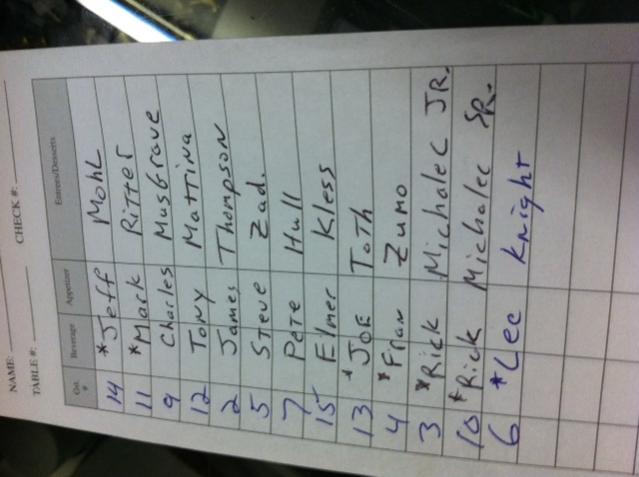 NAME:
TABLE #: CHECK #:
Cst. # Beverage Appetizer Entrees/Desserts
14 *Jeff Mohl
11 *Mark Ritter
9 Charles Musgrove
12 Tony Mattina
2 James Thompson
5 Steve Zad.
7 Pete Hull
15 Elmer Kless
13 *JOE Toth
4 *Fran Zumo
3 *Rick Michalec JR.
10 *Rick Michalec SR.
6 *Lee Knight